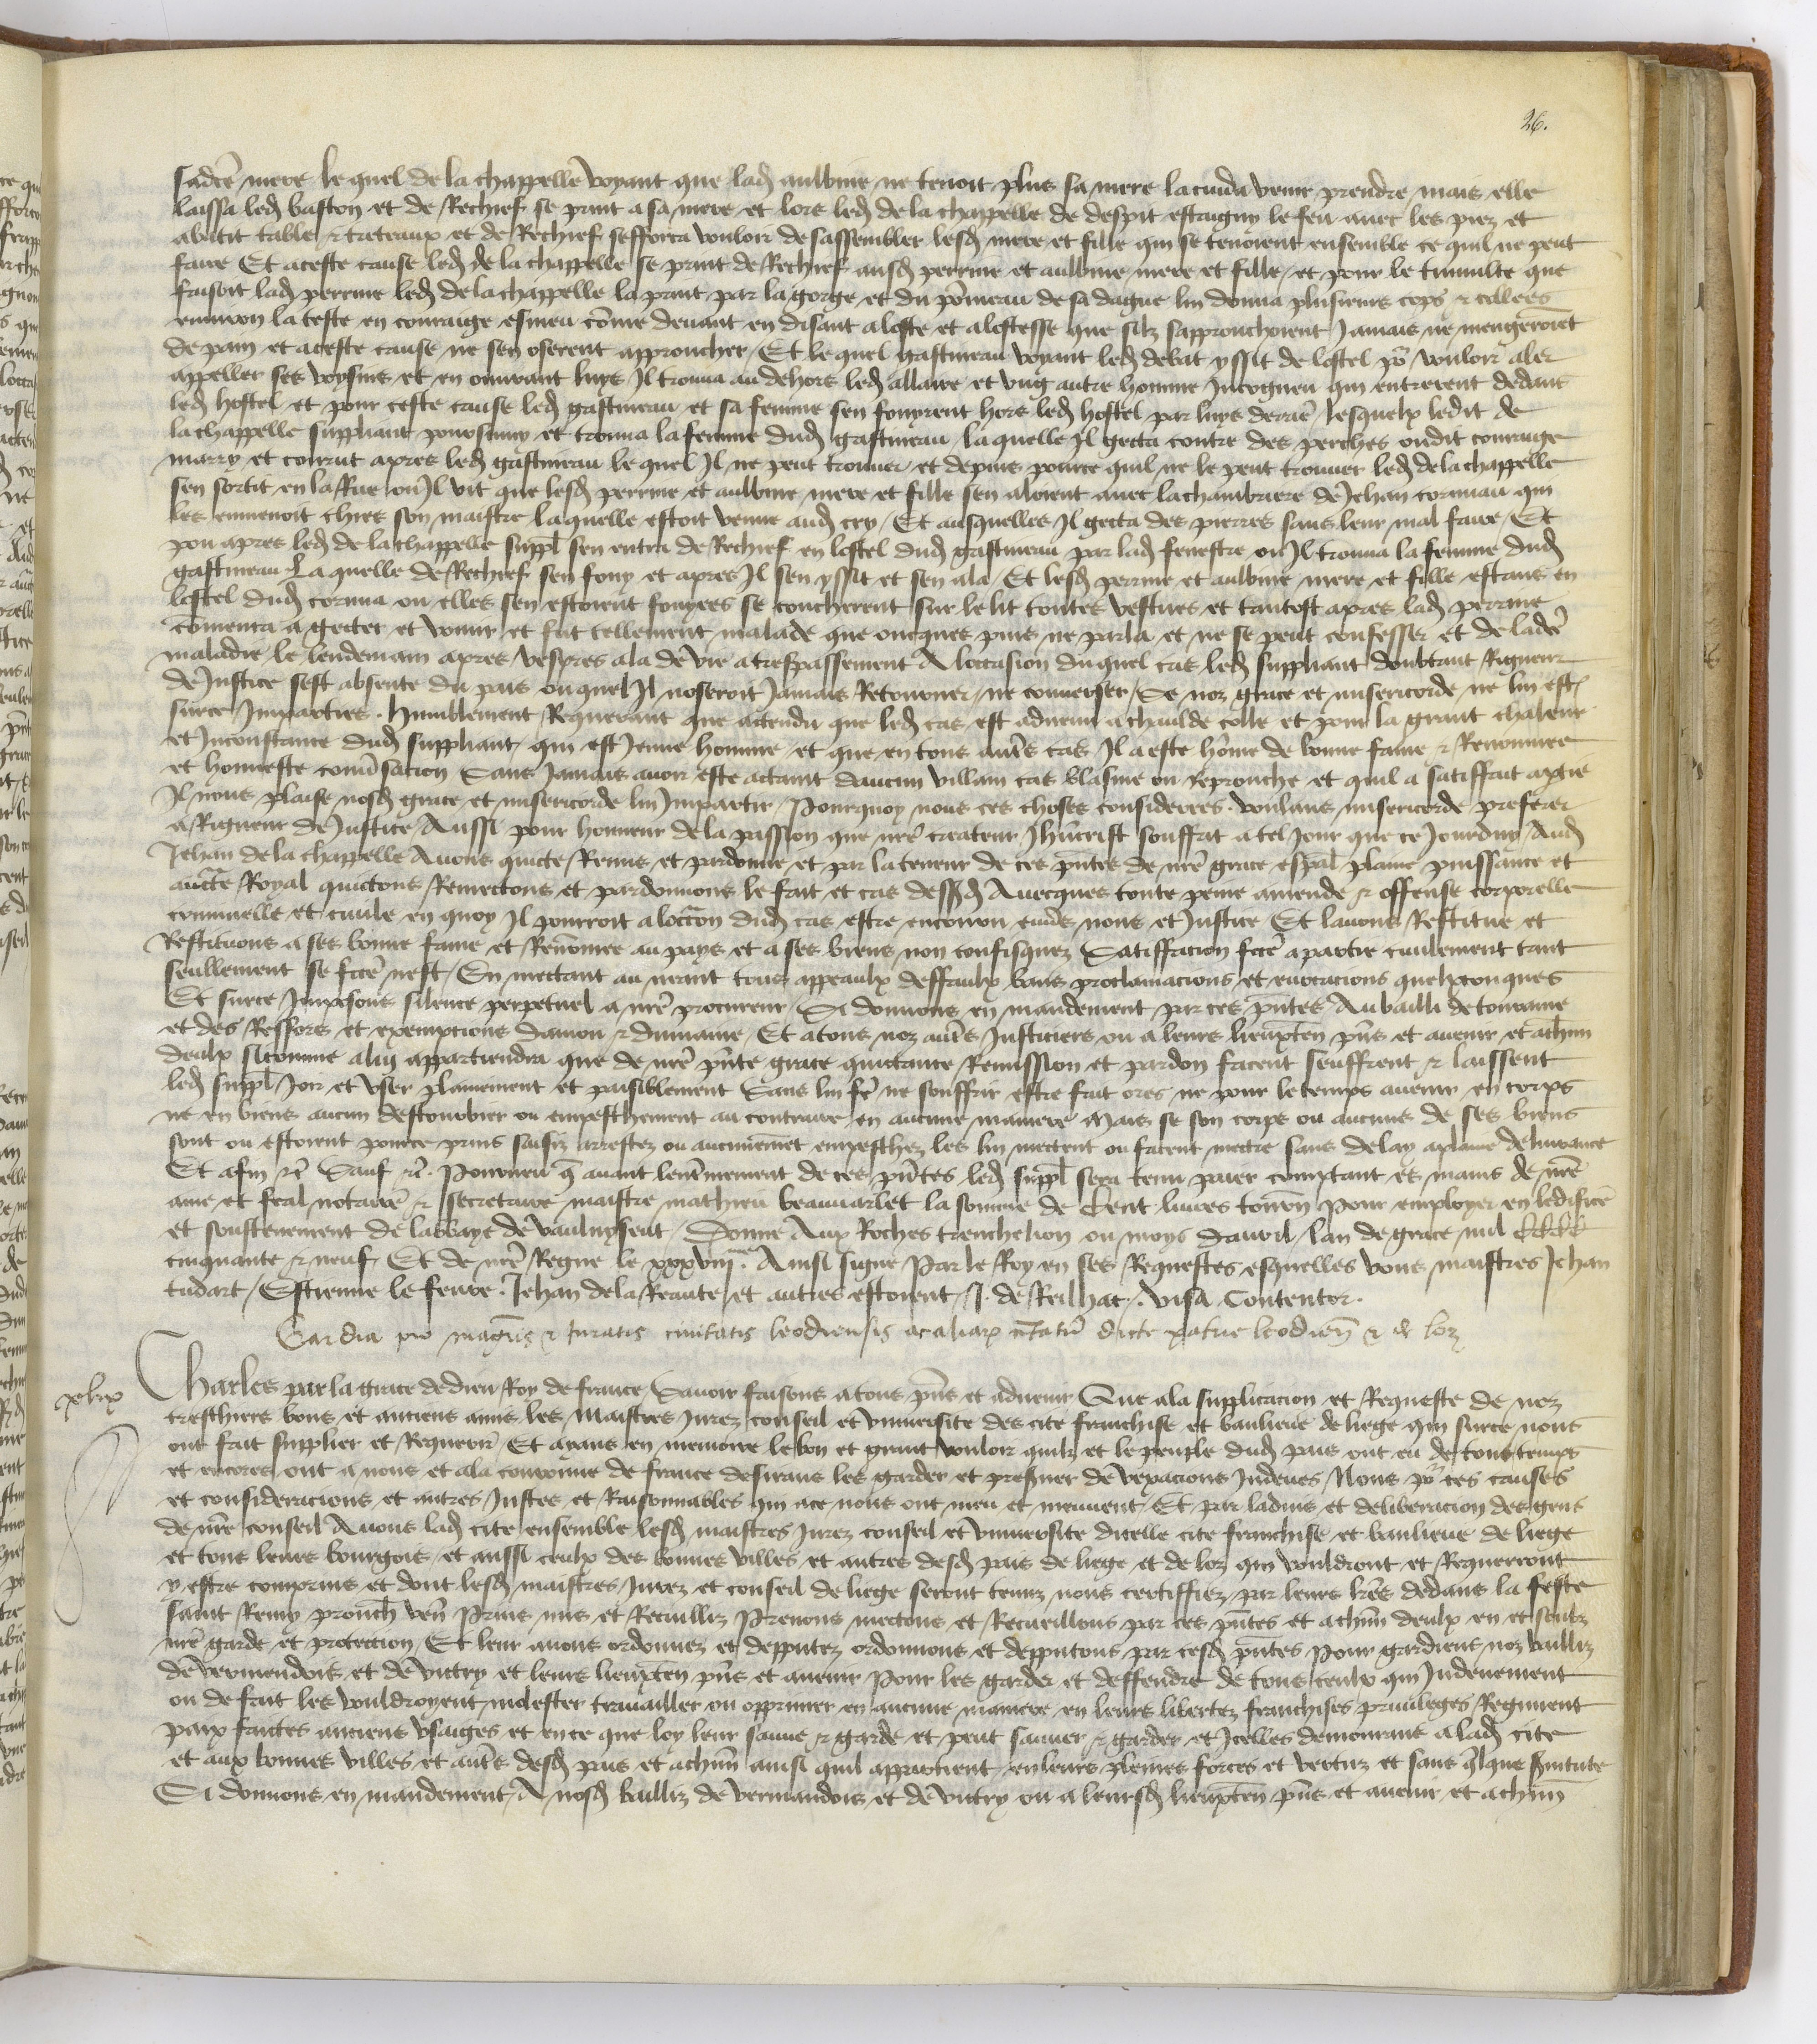 26.
sadce mere le quel de la chappelle voyant que lad aulbine ne tenoit plus sa mere la cuida venir prendre mais elle
laissa led baston et de Rechief se print a sa mere et lors led de la chappelle de despit estaigny le feu avec les piez et
abatit table & treteaux et de Rechief sefforca vouloir desassembler lesd mere et fille qui se tenoient ensemble ce quil ne peut
faire Et a ceste cause led de la chappelle se print de Rechief ausd perrine et aulbine mere et fille et pour le tumulte que
faisoit lad perrine led de la chappelle la print par la gorge et du pomeau de sa dague lui donna plusieurs cops & collees
environ la teste en couraige esmeu come devant en disant a loste et a lostesse que silz sapprouchoient Jamais ne mengeroiet
de pain et a ceste cause ne sen oserent approucher Et le quel gastineau voyant led debat yssit de lostel po vouloir aler
appeller ses voysins et en ouvrant luys Il trouva au dehors led allaire et ung autre homme Incogneu qui entrerent dedans
led hostel et pour ceste cause led gastineau et sa femme sen fouyrent hors led hostel par luys derrie lesquelx ledit de
la chappelle suppliant poursuivy et trouva la femme dud gastineau laquelle Il gecta contre des perches oudit couraige
marry et courut apres led gastineau le quel Il ne peut trouver et depuis pource quil ne le peut trouver led de la chappelle
sen sortit en la Rue ou Il vit que lesd perrine et aulbine mere et fille sen aloient avec la chambriere de Jehan cornuau qui
les emmenoit chies son maistre laquelle estoit venue aud cry Et ausquelles Il gecta des pierres sans leur mal faire Et
pou apres led de la chappelle suppl sen entra de Rechief en lostel dud gastineau par lad fenestre ou Il trouva la femme dud
gastineau La quelle de Rechief sen fouy et apres Il sen yssit et sen ala Et lesd perrine et aulbine mere et fille estans en
lostel dud cornua ou elles sen estoient fouyees se coucherent sur le lit toutes vestues et tantost apres lad perrine
comenca a gecter et vomir et fut tellement malade que oncques puis ne parla et ne se peut confesser et de ladce
maladie le lendemain apres vespres ala de vie a trespassement A loccasion duquel cas led suppliant doubtant Rigueur
de Justice sest absente du pais ouquel Il noseroit Jamais Retourner ne converser Se noz grace et misericorde ne lui est
surce Imparties. humblement Requerant que actendu que led cas est advenu a chaulde colle et pour la grant chaleur
et Inconstance dud suppliant qui est Jeune homme et que en tous autes cas Il a este home de bonne fame & Renommee
et honneste conversacion Sans Jamais avoir este actaint daucun villain cas blasme ou Reprouche et quil a satiffait a ptie
Il nous plaise nosd grace et misericorde lui Impartir Pourquoy nous ces choses considerees voulans misericorde preferer
a Rigueur de Justice Aussi pour honneur de la passion que nre createur Jhucrist souffrit a tel Jour que ce Jourduy Aud
Jehan de la chappelle Avons quicte Remis et pardonne et par la teneur de ces pntes de nre grace espal plaine puissance et
aucte Royal quictons Remectons et pardonnons le fait et cas dessd Avecques toute peine amende & offense corporelle
criminelle et civile en quoy Il pourroit a loccon dud cas estre encouru envs nous et Justice Et lavons Restitue et
Restituons a ses bonne fame et Renomee au pays et a ses biens non confisquez Satiffacion fcte a partie civilement tant
seullement se fcte nest En mectant au neant tous appeaulx deffaulx bans proclamacions et evocacions quelxconques
Et surce Imposons silence perpetuel a nre procureur Si donnons en mandement par ces pntes Au bailli de touraine
et des Ressors et exempcions danjou & du maine Et a tous noz autes Justiciers ou a leurs lieuxten pns et avenir et a chun
deulx sicomme a lui appartiendra que de nre pnte grace quictance Remission et pardon facent seuffrent & laissent
led suppl Joir et user plainement et paisiblement Sans lui fe ne souffrir estre fait ores ne pour le temps avenir en corps
ne en biens aucun destourbier ou empeschement au contraire en aucune maniere Mais se son corps ou aucuns de ses biens
sont ou estoient pource prins saisiz arrestez ou aucunemet empeschez les lui mectent ou facent mectre sans delay a plaine delivrance
Et afin &c Sauf &c. Pourveu q avant lenterinement de ces pntes led suppl sera tenu paier comptant es mains de nre
ame et feal notaire & secretaire maistre mathieu beauvarlet la somme de Cent livres tourn Pour employer en ledifice
et soustenement de labbaye de vauluysent Donne Aux Roches trenchelion ou moys davril lan de grace mil CCCC
cinquante & neuf Et de nre Regne le xxxviime. Ainsi signe Par le Roy en ses Requestes esquelles vous maistres Jehan
tudart Estienne le fevre. Jehan de la Reaute et autres estoient J. de Reilhac. Visa Contentor.
Gardia pro magris & Juratis civitatis leodiensis ac aliarx dicte patrie leodien & de loz
Charles par la grace de dieu Roy de france Savoir faisons a tous pns et advenir Que a la suplicacion et Requeste de noz
treschiers bons et anciens amis les Maistres Jurez conseil et universite des cite franchise et banlieue de liege qui surce nous
ont fait supplier et Requerir Et ayans en memoire le bon et grant vouloir quilz et le peuple dud pais ont eu de tout temps
et encores ont a nous et a la couronne de france desirans les garder et preserver de vexacions Indeues Nous por ces causes
et consideracions et autres Justes et Raisonnables qui a ce nous ont meu et meuvent Et par ladvis et deliberacion des gens
de nre conseil Avons lad cite ensemble lesd maistres Jurez conseil et universite dicelle cite franchise et banlieue de liege
et tous leurs bourgois et aussi ceulx des bonnes villes et autres desd pais de liege et de loz qui vouldront et Requerront
y estre comprins et dont lesd maistres Jurez et conseil de liege seront tenuz nous certiffiez par leurs lres dedans la feste
saint Remy prouch ven Prins mis et Recuilliz Prenons mectons et Recueillons par ces pntes et a chun deulx en et soubz
nre garde et protection Et leur avons ordonnez et depputez ordonnons et depputons par cesd pntes Pour gardiens noz bailliz
de vermendois et de vitry et leurs lieuxten pns et avenir Pour les garder et deffendre de tous ceulx qui Indeuement
ou de fait les vouldroyent molester travailler ou opprimer en aucune maniere en leurs libertez franchises privileges Regiment
paix faictes anciens usaiges et en ce que loy leur sauve & garde et peut sauver & garder et Icelles demourans a lad cite
et aux bonnes villes et autes desd pais et a chun ainsi quil appartient en leurs pleines forces et vertuz et sans qlque servitute
Si donnons en mandement A nosd bailliz de vermandois et de vitry ou a leursd lieuxten pns et avenir et a chun